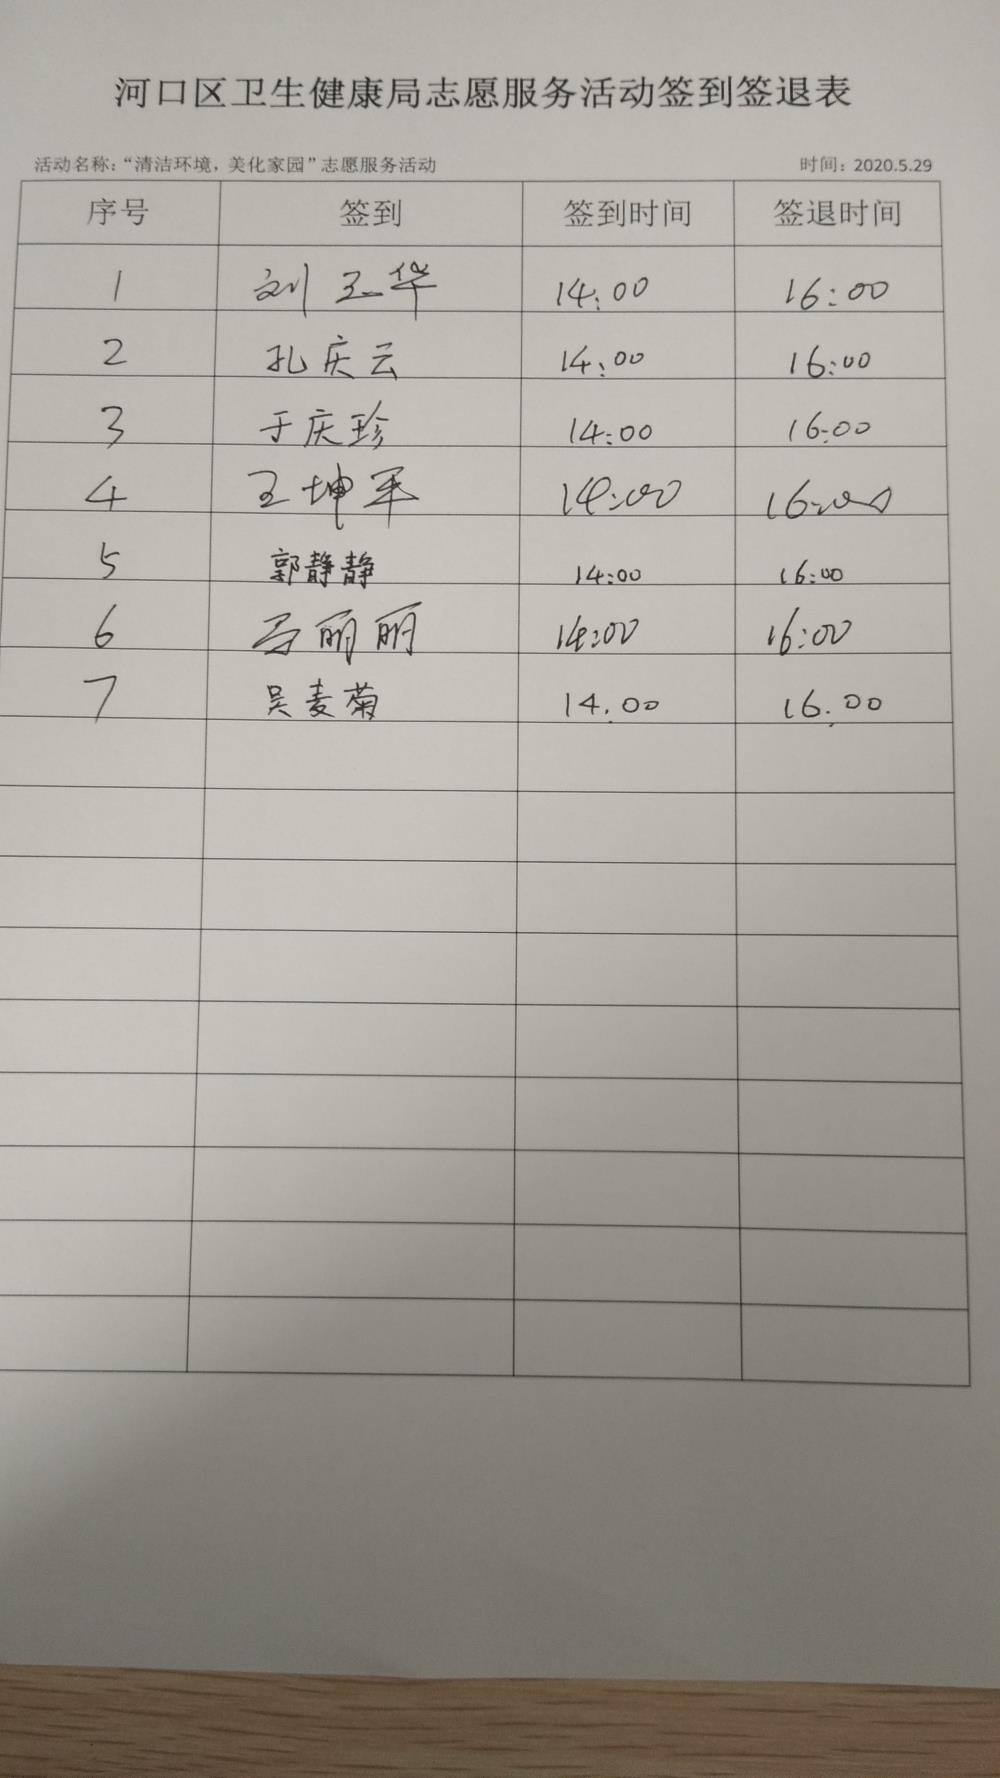 河口区卫生健康局志愿服务活动签到签退表
活动名称：“清洁环境，美化家园”志愿服务活动 时间：2020.5.29
序号 签到 签到时间 签退时间
1 刘玉华 14:00 16:00
2 孔庆云 14:00 16:00
3 于庆珍 14:00 16:00
4 王坤军 14:00 16:00
5 郭静静 14:00 16:00
6 马丽丽 14:00 16:00
7 吴麦菊 14.00 16.00